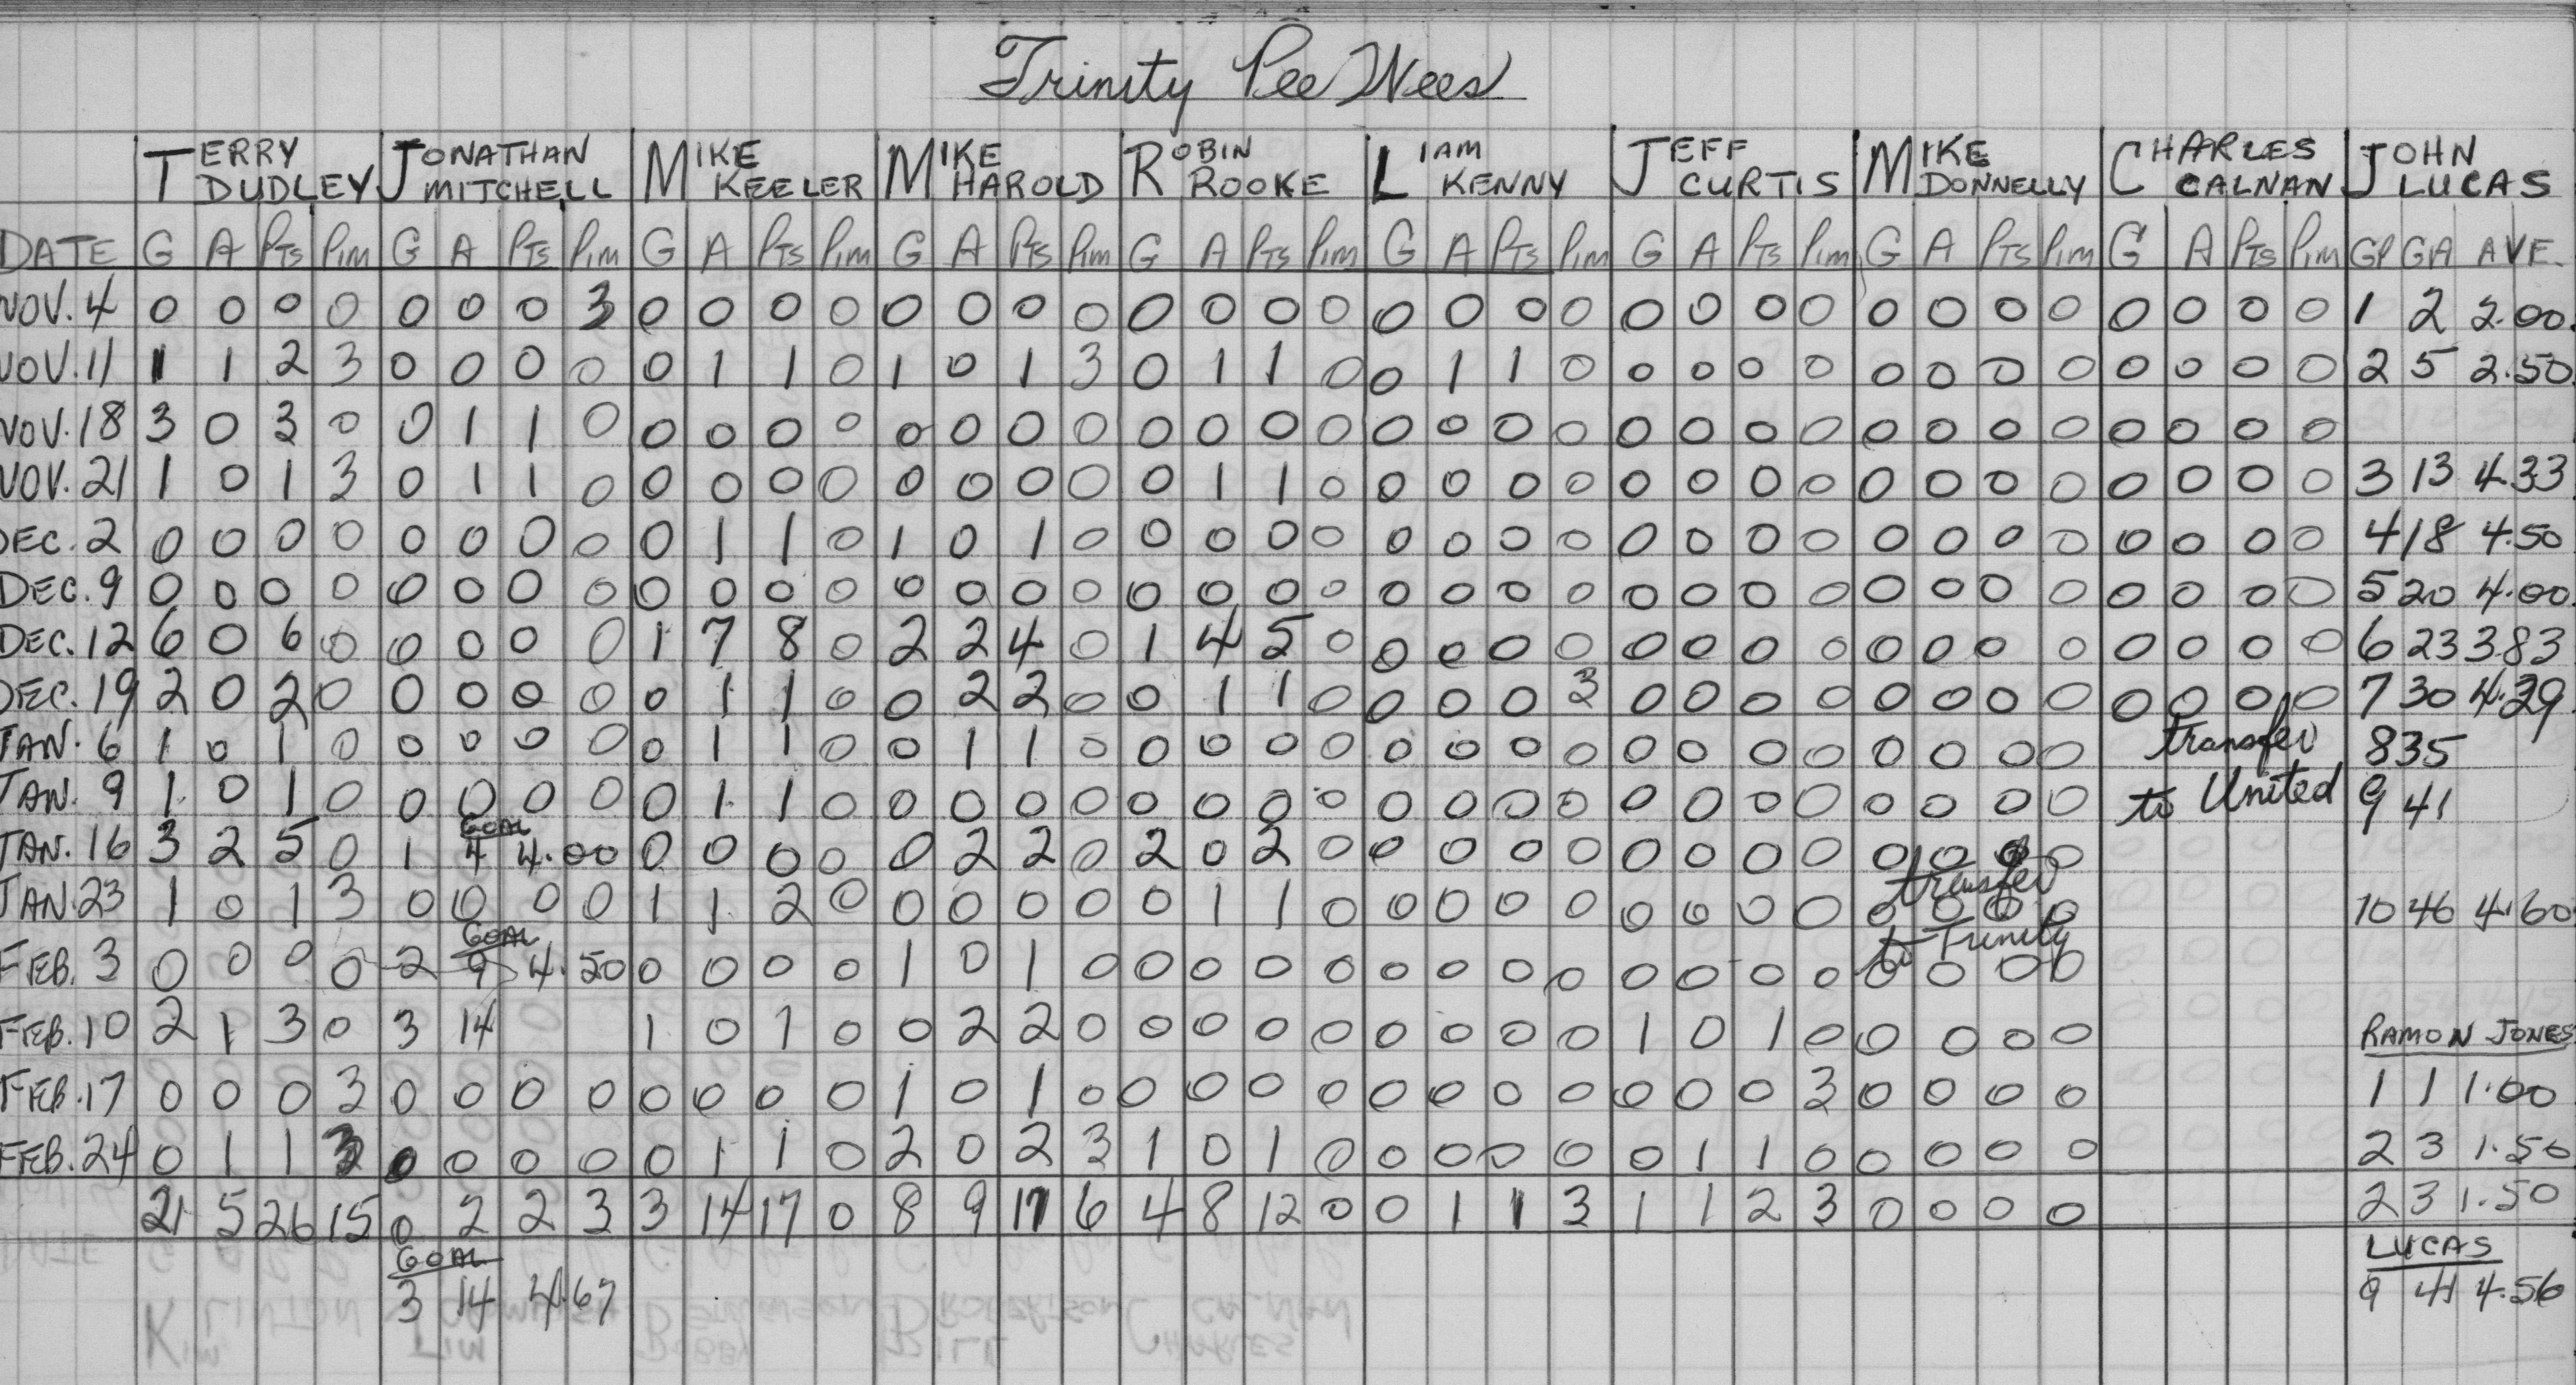 Trinity Pee Wees
TERRY DUDLEY JONATHAN MITCHELL MIKE KEELER MIKE HAROLD ROBIN ROOKE LIAM KENNY JEFF CURTIS MIKE DONNELLY CHARLES CALNAN JOHN LUCAS
DATE G A PTS PIM G A PTS PIM G A PTS PIM G A PTS PIM G A PTS PIM G A PTS PIM G A PTS PIM G A PTS PIM G A PTS PIM GP GA AVE.
NOV. 4 0 0 0 0 0 0 0 3 0 0 0 0 0 0 0 0 0 0 0 0 0 0 0 0 0 0 0 0 0 0 0 0 0 0 0 0 1 2 2.00
NOV. 11 1 1 2 3 0 0 0 0 0 1 1 0 1 0 1 3 0 1 1 0 0 1 1 0 0 0 0 0 0 0 0 0 0 0 0 0 2 5 2.50
NOV. 18 3 0 3 0 0 1 1 0 0 0 0 0 0 0 0 0 0 0 0 0 0 0 0 0 0 0 0 0 0 0 0 0 0 0 0 0
NOV. 21 1 0 1 3 0 1 1 0 0 0 0 0 0 0 0 0 0 1 1 0 0 0 0 0 0 0 0 0 0 0 0 0 0 0 0 0 3 13 4.33
DEC. 2 0 0 0 0 0 0 0 0 0 1 1 0 1 0 1 0 0 0 0 0 0 0 0 0 0 0 0 0 0 0 0 0 0 0 0 0 4 18 4.50
DEC. 9 0 0 0 0 0 0 0 0 0 0 0 0 0 0 0 0 0 0 0 0 0 0 0 0 0 0 0 0 0 0 0 0 0 0 0 0 5 20 4.00
DEC. 12 6 0 6 0 0 0 0 0 1 7 8 0 2 2 4 0 1 4 5 0 0 0 0 0 0 0 0 0 0 0 0 0 0 0 0 0 6 23 3.83
DEC. 19 2 0 2 0 0 0 0 0 0 1 1 0 0 2 2 0 0 1 1 0 0 0 0 3 0 0 0 0 0 0 0 0 0 0 0 0 7 30 4.29
JAN. 6 1 0 1 0 0 0 0 0 0 1 1 0 0 1 1 0 0 0 0 0 0 0 0 0 0 0 0 0 0 0 0 0 transfer 8 35
JAN. 9 1 0 1 0 0 0 0 0 0 1 1 0 0 0 0 0 0 0 0 0 0 0 0 0 0 0 0 0 0 0 0 0 to United 9 41
GOAL
JAN. 16 3 2 5 0 1 4 4.00 0 0 0 0 0 2 2 0 2 0 2 0 0 0 0 0 0 0 0 0 0 0 0 0
transfer
JAN. 23 1 0 1 3 0 0 0 0 1 1 2 0 0 0 0 0 0 1 1 0 0 0 0 0 0 0 0 0 0 0 0 0 10 46 4.60
GOAL to Trinity
FEB. 3 0 0 0 0 2 9 4.50 0 0 0 0 1 0 1 0 0 0 0 0 0 0 0 0 0 0 0 0 0 0 0 0
FEB. 10 2 1 3 0 3 14 1 0 1 0 0 2 2 0 0 0 0 0 0 0 0 0 1 0 1 0 0 0 0 0 RAMON JONES
FEB. 17 0 0 0 3 0 0 0 0 0 0 0 0 1 0 1 0 0 0 0 0 0 0 0 0 0 0 0 3 0 0 0 0 1 1 1.00
FEB. 24 0 1 1 3 0 0 0 0 0 1 1 0 2 0 2 3 1 0 1 0 0 0 0 0 0 1 1 0 0 0 0 0 2 3 1.50
21 5 26 15 0 2 2 3 3 14 17 0 8 9 17 6 4 8 12 0 0 1 1 3 1 1 2 3 0 0 0 0 2 3 1.50
GOAL LUCAS
3 14 4.67 9 41 4.56